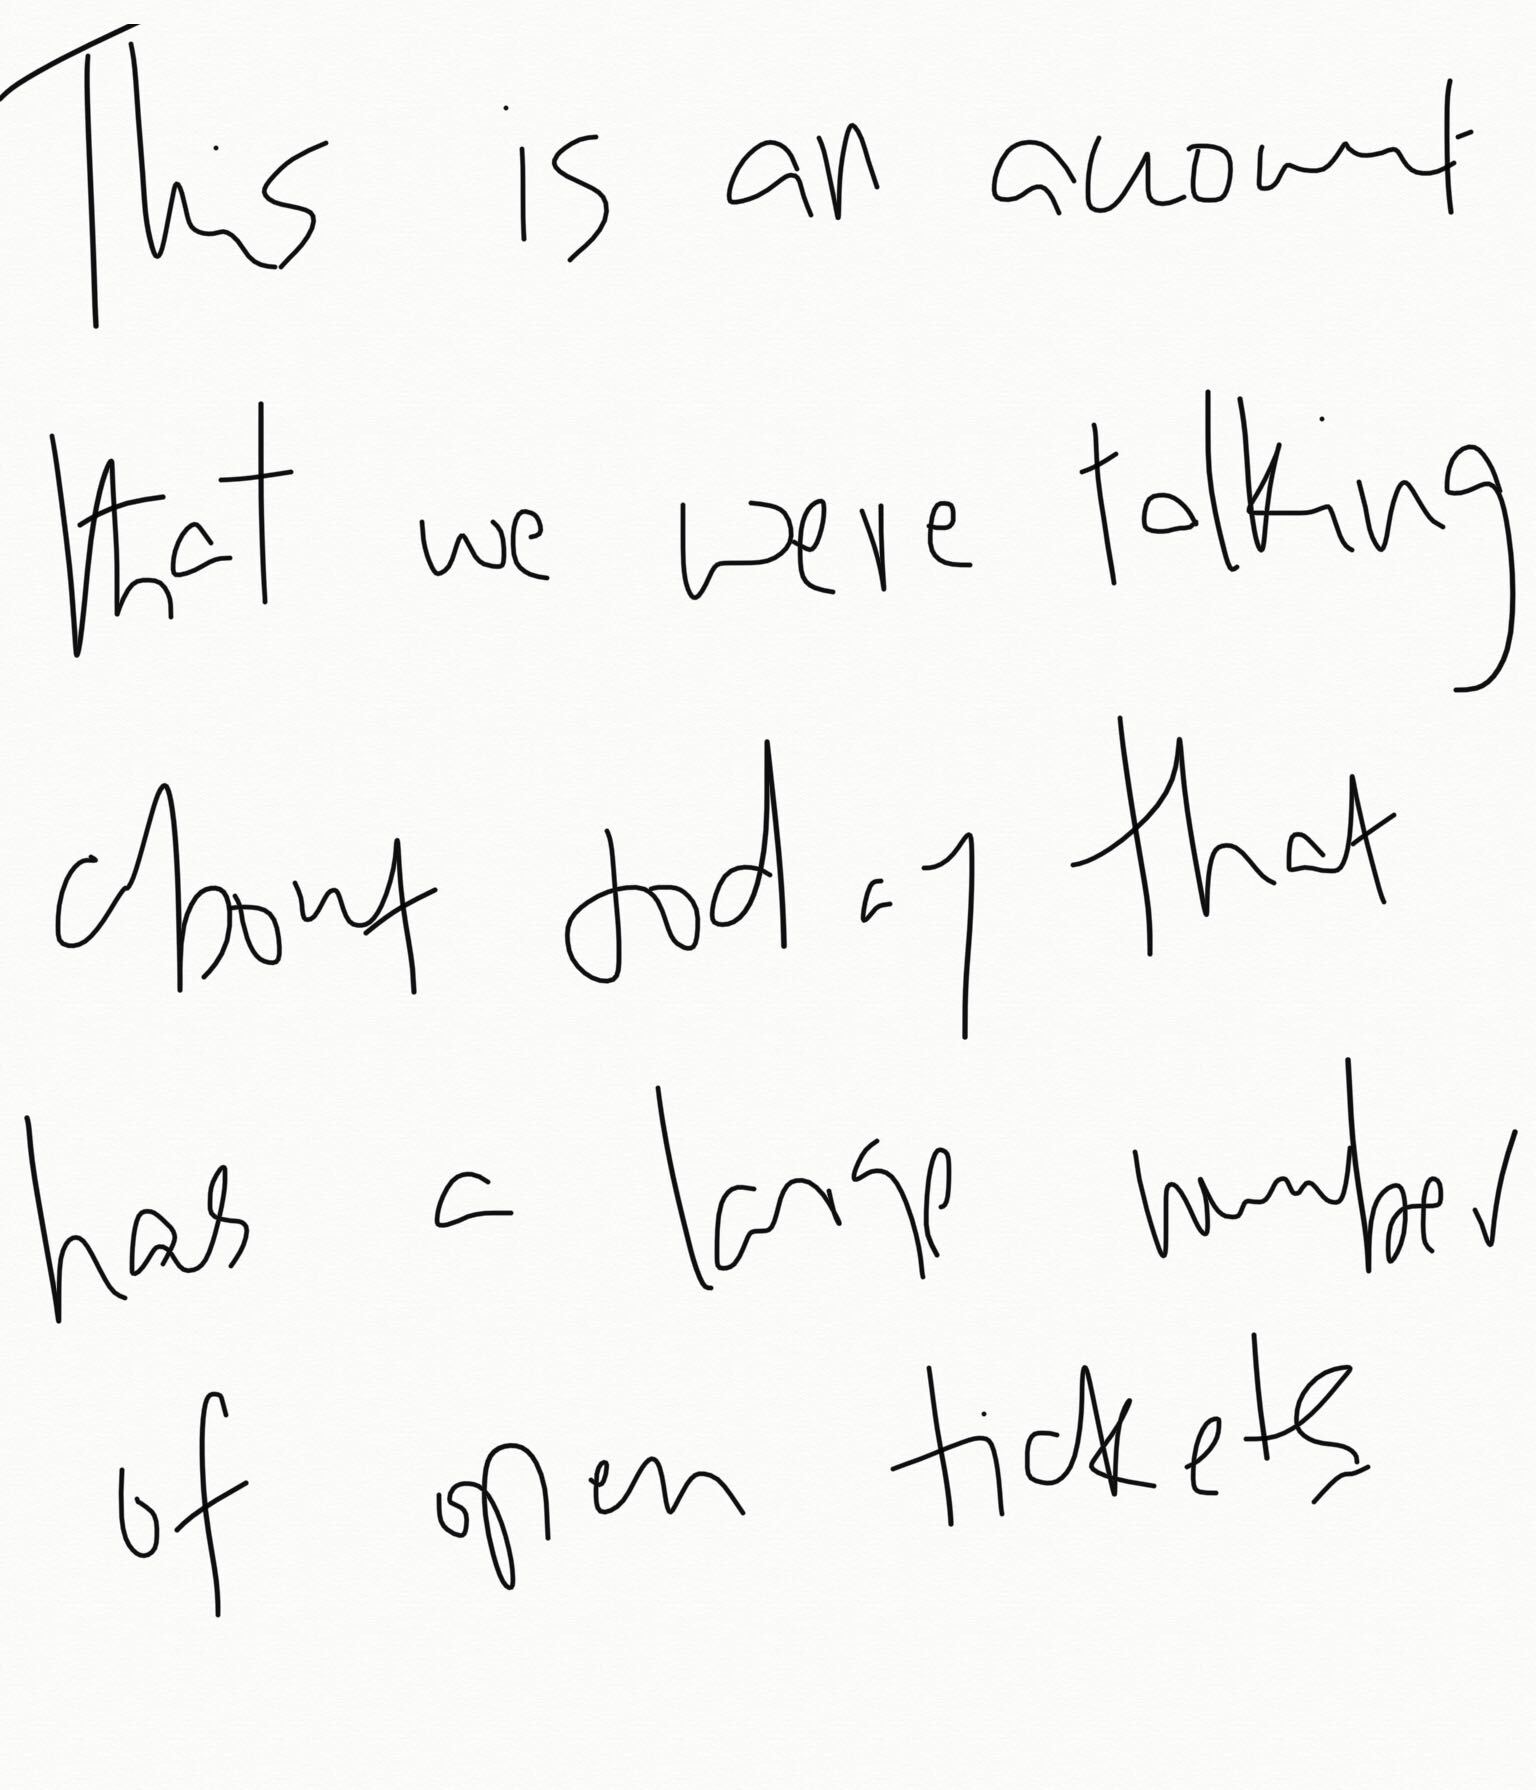 This is an account
that we were talking
about today that
has a large number
of open tickets